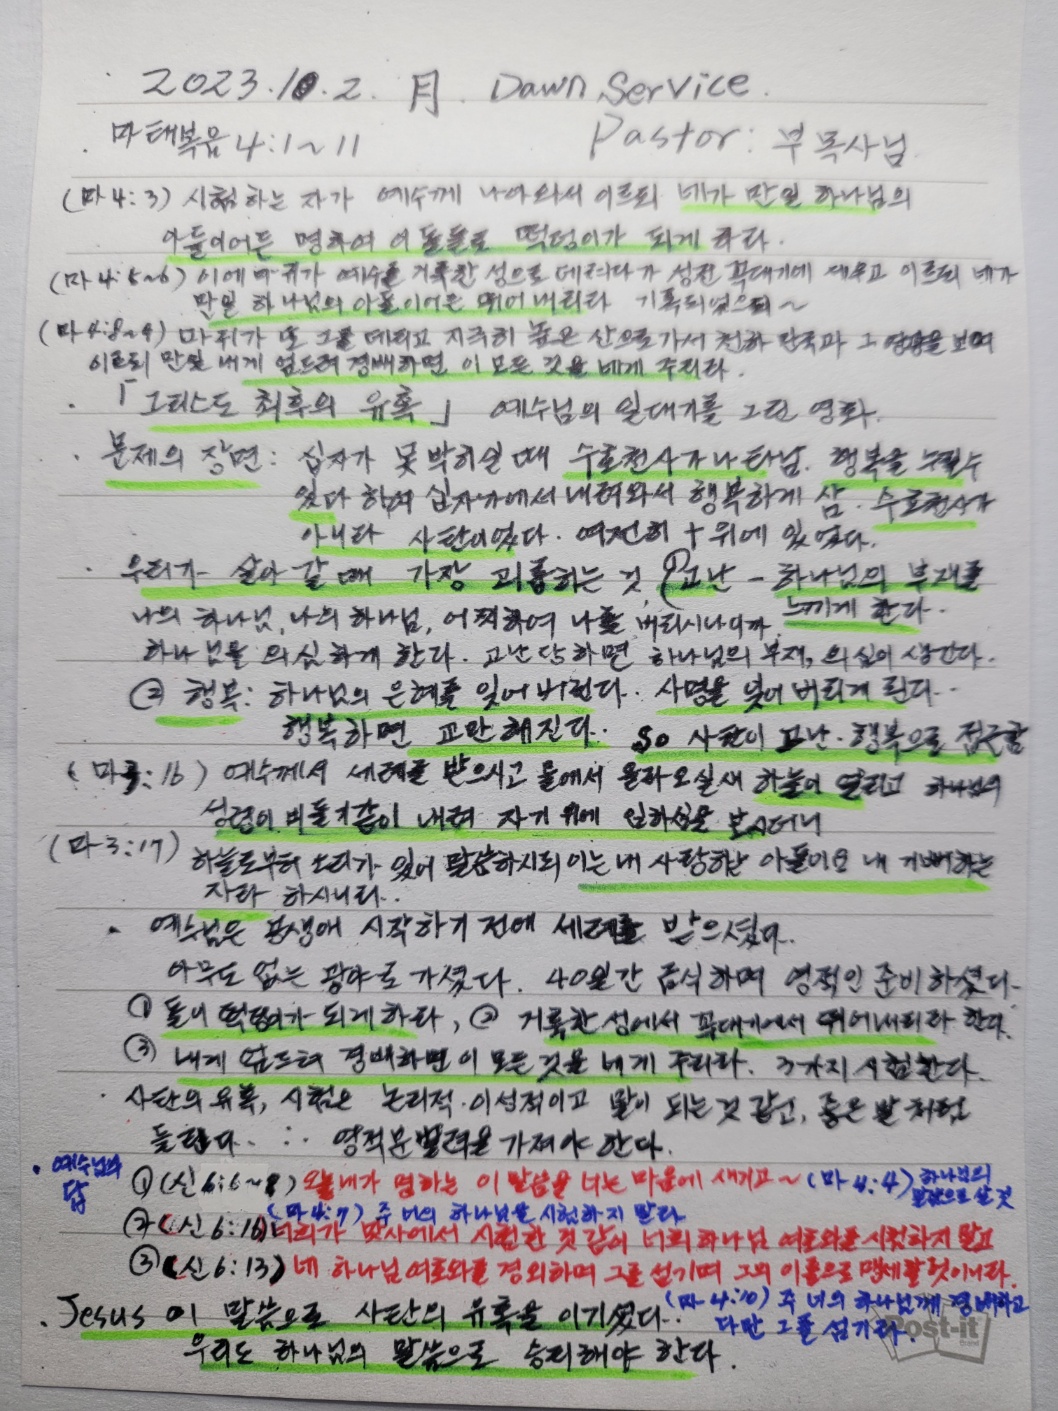 2023.10.2. 月. Dawn Service.
마태복음 4:1~11 Pastor: 부목사님.
(마4:3) 시험하는 자가 예수께 나아와서 이르되 네가 만일 하나님의
아들이어든 명하여 이 돌들로 떡덩이가 되게 하라.
(마4:5~6) 이에 마귀가 예수를 거룩한 성으로 데려다가 성전 꼭대기에 세우고 이르되 네가
만일 하나님의 아들이어든 뛰어내리라 기록되었으되~
(마4:8~9) 마귀가 또 그를 데리고 지극히 높은 산으로 가서 천하 만국과 그 영광을 보여
이르되 만일 내게 엎드려 경배하면 이 모든 것을 네게 주리라.
· 「그리스도 최후의 유혹」 예수님의 일대기를 그린 영화.
· 문제의 장면: 십자가 못 박히실 때 수호천사가 나타남. 행복을 누릴 수
있다 하여 십자가에서 내려와서 행복하게 삶. 수호천사가
아니라 사탄이었다. 여전히 † 위에 있었다.
· 우리가 살아갈 때 가장 괴롭히는 것, ① 고난 - 하나님의 부재를
나의 하나님, 나의 하나님, 어찌하여 나를 버리시나이까. 느끼게 한다.
하나님을 의심하게 한다. 고난 당하면 하나님의 부재, 의심이 생긴다.
② 행복: 하나님의 은혜를 잊어버린다. 사명을 잊어버리게 된다..
행복하면 교만해진다. So 사탄이 고난·행복으로 접근함
(마3:16) 예수께서 세례를 받으시고 물에서 올라오실새 하늘이 열리고 하나님의
성령이 비둘기같이 내려 자기 위에 임하심을 보시더니
(마3:17) 하늘로부터 소리가 있어 말씀하시되 이는 내 사랑하는 아들이요 내 기뻐하는
자라 하시니라..
· 예수님은 공생애 시작하기 전에 세례를 받으셨다.
아무도 없는 광야로 가셨다. 40일간 금식하며 영적인 준비하셨다.
① 돌이 떡덩이가 되게 하라, ② 거룩한 성에서 꼭대기에서 뛰어내리라 한다.
③ 내게 엎드려 경배하면 이 모든 것을 네게 주리라. 3가지 시험한다.
· 사탄의 유혹, 시험은 논리적·이성적이고 말이 되는 것 같고, 좋은 말처럼
들린다. ∴ 영적분별력을 가져야 한다.
· 예수님의 답 ① (신6:6~8) 오늘 내가 명하는 이 말씀을 너는 마음에 새기고~ (마4:4) 하나님의 말씀으로 살 것
(마4:7) 주 너의 하나님을 시험하지 말라
② (신6:16) 너희가 맛사에서 시험한 것 같이 너희 하나님 여호와를 시험하지 말고
③ (신6:13) 네 하나님 여호와를 경외하며 그를 섬기며 그의 이름으로 맹세할 것이니라.
· Jesus 이 말씀으로 사탄의 유혹을 이기셨다.. (마4:10) 주 너의 하나님께 경배하고
다만 그를 섬기라.
우리도 하나님의 말씀으로 승리해야 한다.
Post-it